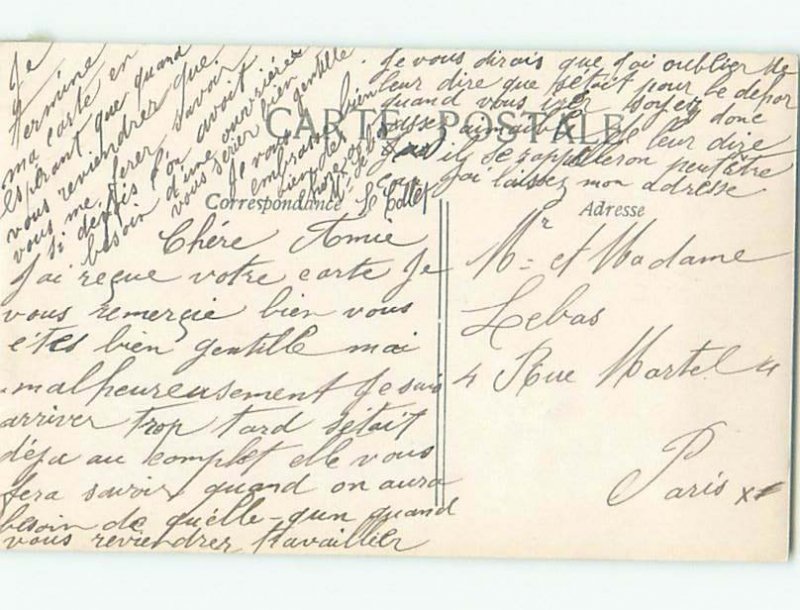 CARTE POSTALE
Correspondance
Adresse
Chére Amie
J'ai reçue votre carte Je
vous remerçie bien vous
etes bien gentille mai
malheureusement Je suis
arriver trop tard sétait
déja au complet elle vous
fera savoir quand on aura
besoin de quélle-qun quand
vous reviendrer travailler
Je
termine
ma carte en
espérant que quand
vous reviendrez que
vous me ferer savoir
si depuis l'on avait
besoin d'une ouvrière
vous serier bien
gentille
Je vous
embrasse bien
Je vous dirais que J'ai oublier de
leur dire que sétait pour le depor
quand vous irer soyez donc
assez aimable de leur dire
ils se rappelleron peutêtre
J'ai laissez mon adresse
Mr et Madame
Lebas
4 Rue Martel 4
Paris x